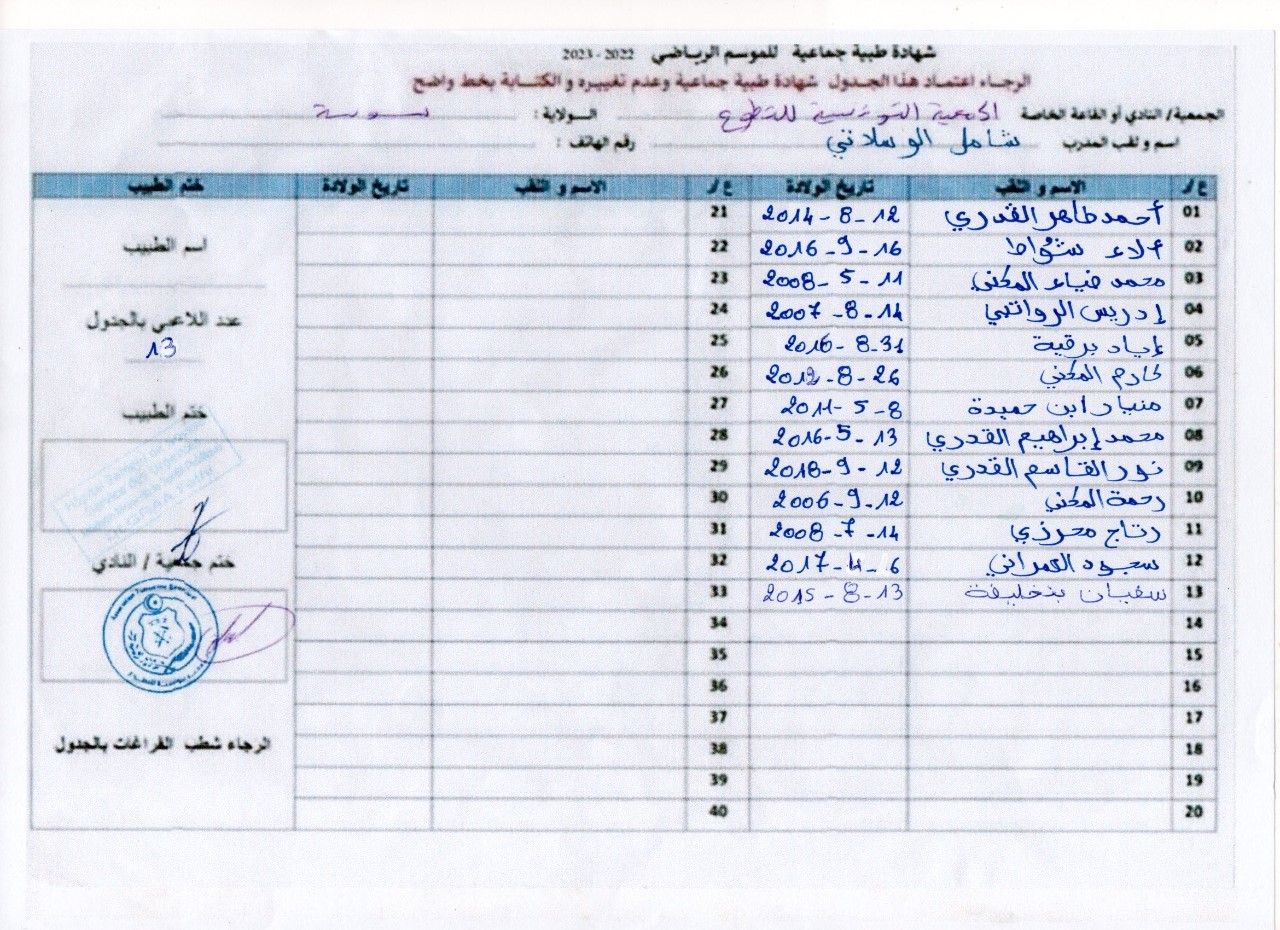 شهادة طبية جماعية للموسم الرياضي 2022 - 2023
الرجاء اعتماد هذا الجدول شهادة طبية جماعية وعدم تغييره و الكتابة بخط واضح
الجمعية/ النادي أو القاعة الخاصة الجمعية التونسية للتطوع الولاية : سوسة
اسم و لقب المدرب شامل الوسلاتي رقم الهاتف :
ع/ الاسم و اللقب تاريخ الولادة ع/ الاسم و اللقب تاريخ الولادة ختم الطبيب
01 أحمد طاهر القدري 12-8-2014 21
02 ألاء شواط 16-9-2016 22
اسم الطبيب
03 محمد ضياء المكني 11-5-2008 23
04 إدريس الرواتبي 14-8-2007 24
عدد اللاعبي بالجدول
05 إياد برقية 31-8-2016 25
13
06 المكني 26-8-2012 26
07 ابن حميدة 8-5-2011 27
ختم الطبيب
08 محمد إبراهيم القدري 13-5-2016 28
09 نور القاسم القدري 12-9-2018 29
10 رحمة المكني 12-9-2006 30
11 رتاج محرزي 14-7-2008 31
12 سجود العمراني 6-4-2017 32
ختم جمعية / النادي
13 سفيان بنخليفة 13-8-2015 33
14 34
15 35
16 36
17 37
18 38
الرجاء شطب الفراغات بالجدول
19 39
20 40